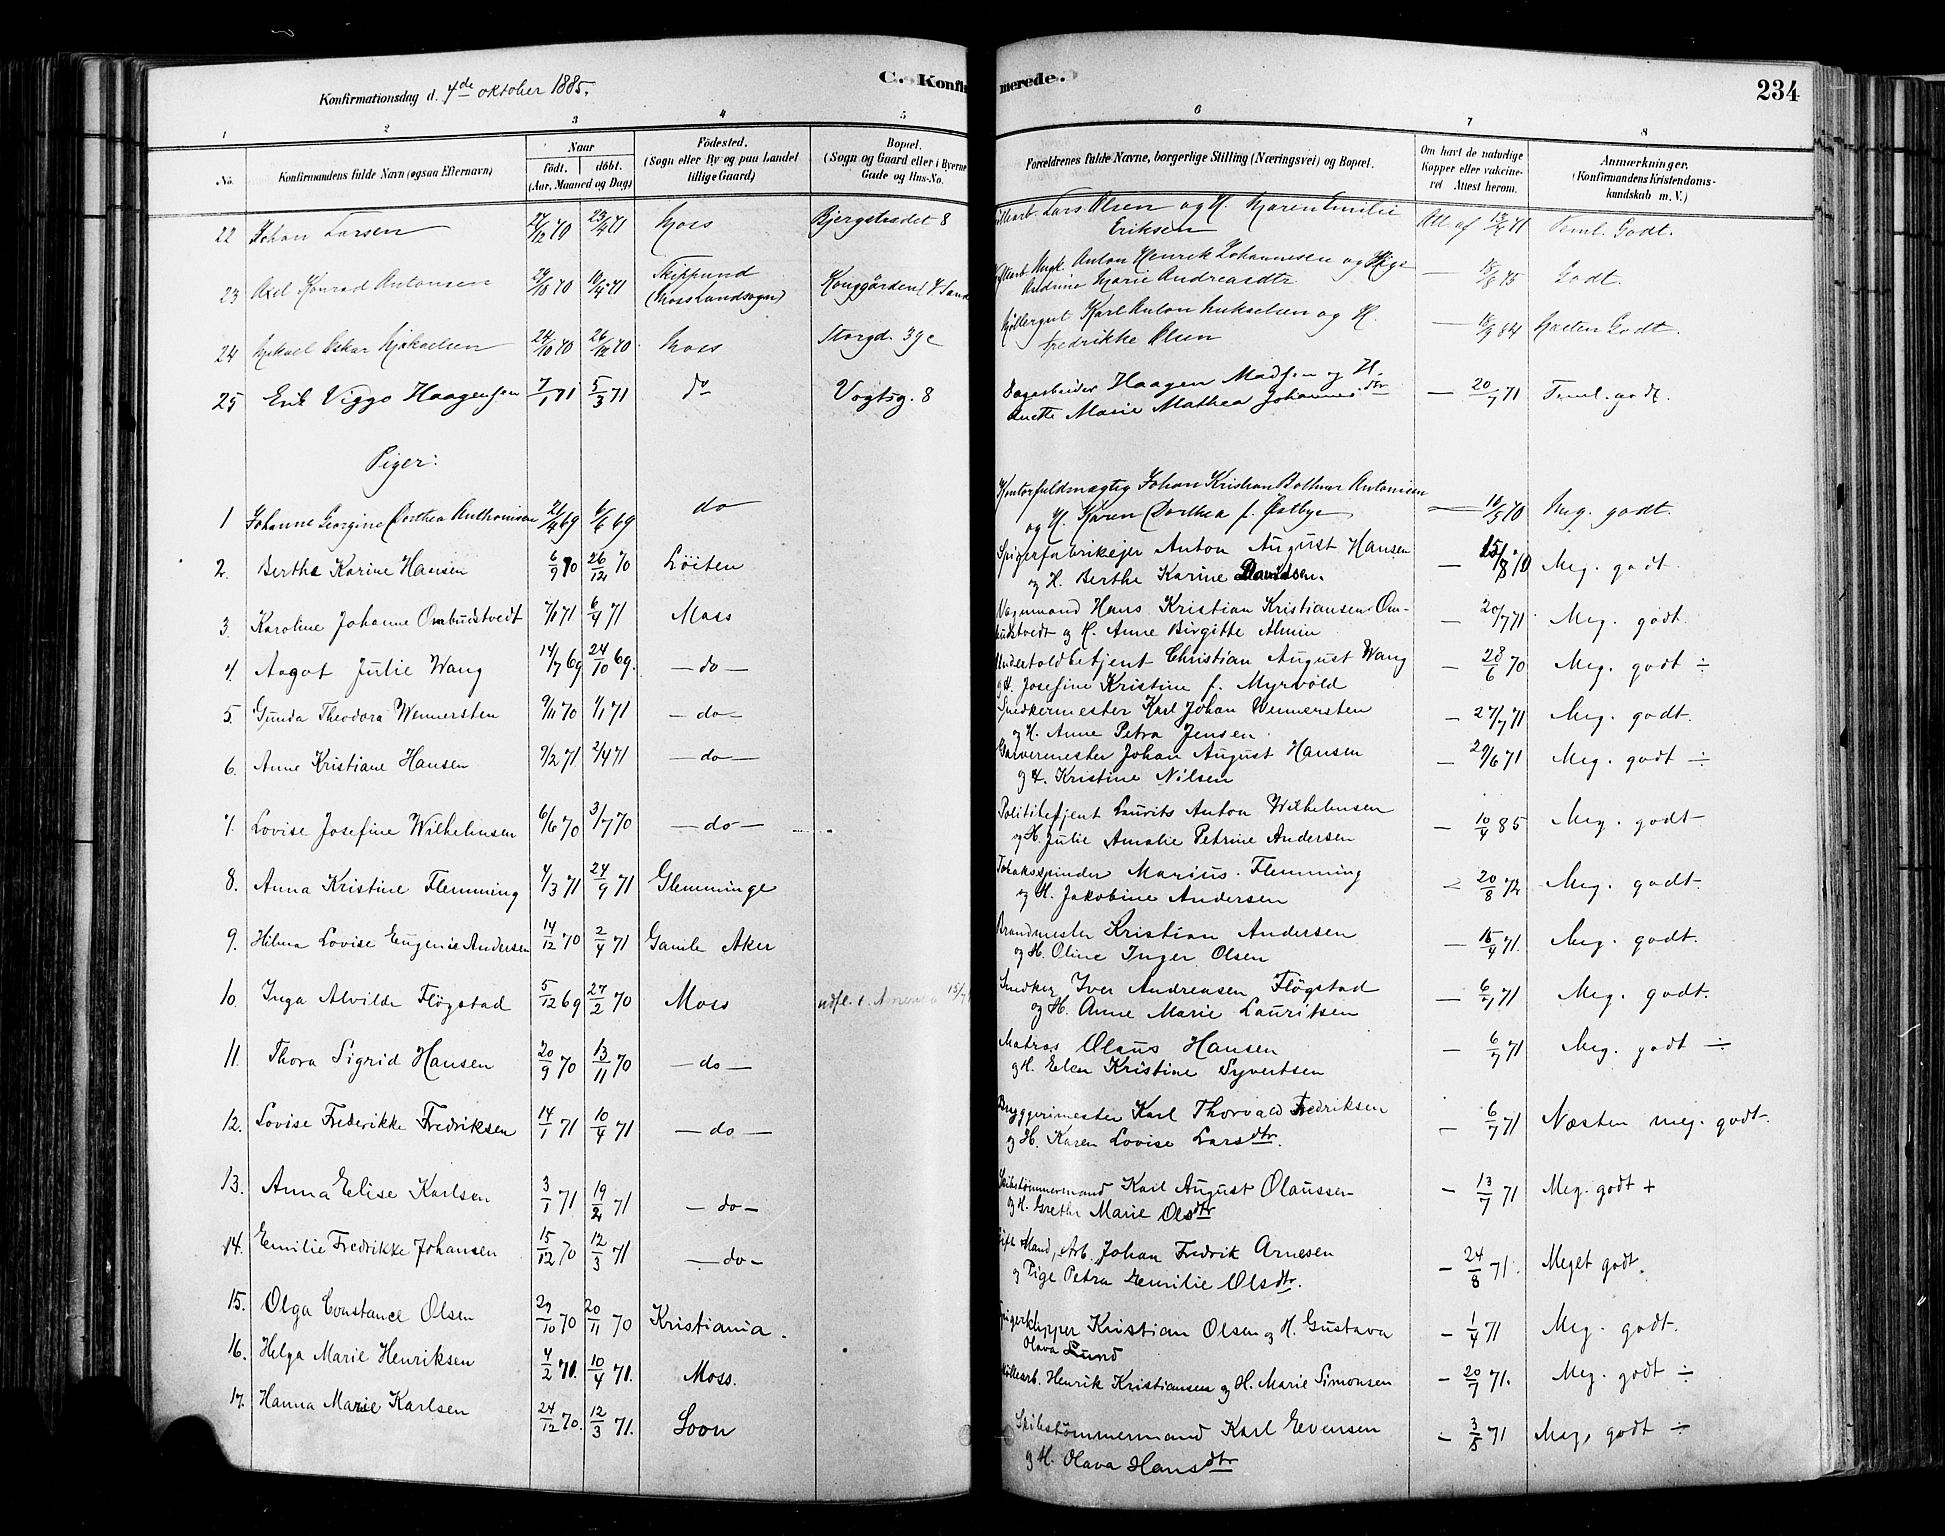 Konfirmationsdag d. 4de oktober 1885.
C. Konfirmerede.
234
1 2 3 4 5 6 7 8
No.
Konfirmandens fulde Navn (ogsaa Efternavn)
Naar
födt. döbt.
(Aar, Maaned og Dag)
Födested.
(Sogn eller By og paa Landet tillige Gaard)
Bopæl.
(Sogn og Gaard eller i Byerne Gade og Hus-No.
Forældrenes fulde Navne, borgerlige Stilling (Næringsvei) og Bopæl.
Om havt de naturlige Kopper eller vakcineret Attest herom.
Anmærkninger.
(Konfirmandens Kristendomskundskab m. V.)
22 Johan Larsen 27/12 70 23/4 71 Moss Bjergstrædet 8 Lars Olsen og H. Maren Emilie Att. af 13/7 71 Teml. Godt.
Eriksen
23 Axel Konrad Antonsen 29/10 70 10/4 71 Skippund Konggården Anton Henrik Johannesen og Pige — 15/8 75 Godt.
(Moss Landsogn) Andrine Marie Andreasdtr
24 Mikael Oskar Mikaelsen 24/10 70 26/12 70 Moss Storgd. 39c Møllergut Karl Anton Mikaelsen og H. — 18/9 84 Næsten Godt.
Fredrikke Olsen
25 Erik Viggo Haagensen 7/1 71 5/3 71 do Vogtsg. 8 Dagarbeider Haagen Madsen og H. — 20/7 71 Teml. godt.
Anette Marie Mathea Johannesdtr
Piger:
1 Johanne Georgine Dorthea Anthonisen 21/4 69 6/6 69 do Kontorfuldmægtig Johan Kristian Bothner Antonisen — 10/5 70 Meg. godt.
og H. Karen Dorthea f. Østbye
2. Berthe Karine Hansen 6/9 70 26/12 70 Löiten Spigerfabrikejer Anton August Hansen — 15/8 70 Meg. godt.
og H. Berthe Karine Davidsen.
3. Karoline Johanne Ombudstvedt 7/1 71 6/4 71 Moss Vognmand Hans Kristian Kristiansen Om- — 20/7 71 Meg. godt.
budstvedt og H. Anne Birgitte Almin
4. Aagot Julie Wang 14/7 69 24/10 69. — do — Undertoldbetjent Christian August Wang — 28/6 70 Meg. godt ÷
og H. Josefine Kristine f. Myrvold
5. Gunda Theodora Wennersten 9/11 70 1/1 71 — do — Snedkermester Karl Johan Wennersten — 27/7 71 Meg. godt.
og H. Anne Petra Jensen
6. Anne Kristiane Hansen 9/2 71 2/4 71 — do — Garvermester Johan August Hansen — 29/6 71 Meg. godt ÷
og H. Kristine Nilsen
7. Lovise Josefine Wilhelmsen 6/6 70 3/7 70 — do — Politibetjent Laurits Anton Wilhelmsen — 10/4 85 Meg. godt
og H. Julie Amalie Petrine Andersen
8. Anna Kristine Flemming 4/3 71 24/9 71 Glemminge Tobaksspinder Marius Flemming — 20/8 72 Meg. godt.
og H. Jakobine Andersen
9. Hilma Lovise Eugenie Andersen 14/12 70 2/4 71 Gamle Aker Brandmester Kristian Andersen — 15/4 71. Meg. godt.
og H. Oline Inger Olsen
10. Inga Alvilde Fløgstad 5/12 69 27/2 70 Moss Snedker Iver Andreasen Fløgstad — 6/7 71 Meg. godt.
og H. Anne Marie Lauritsen
11. Thora Sigrid Hansen 20/9 70 13/11 70 — do — Matros Olaus Hansen — 6/7 71 Meg. godt ÷
og H. Elen Kristine Syvertsen
12. Lovise Frederikke Fredriksen 14/1 71 10/4 71 — do — Bryggerimester Karl Thorvald Fredriksen — 6/7 71 Næsten meg. godt.
og H. Karen Lovise Larsdtr.
13. Anna Elise Karlsen 3/1 71 19/2 71 — do — Skibstømmermand Karl August Olaussen — 13/7 71 Meg. godt +
og H. Grethe Marie Olsdtr
14. Emilie Fredrikke Johansen 15/12 70 12/3 71 — do — Gift Mand, Arb. Johan Fredrik Arnesen — 24/8 71. Meget godt.
og Pige Petra Emilie Olsdtr.
15. Olga Constance Olsen 29/10 70 20/11 70 Kristiania. Spigerklipper Kristian Olsen og H. Gustava — 1/4 71 Meg. godt.
Olava Lund
16. Helga Marie Henriksen 4/2 71. 10/4 71. Moss. Møllearb. Henrik Kristiansen og H. Marie Simonsen — 20/7 71. Meg. godt ÷
17. Hanna Marie Karlsen 24/12 70. 12/3 71. Soon Skibstømmermand Karl Evensen — 3/8 71 Meg. godt ÷
og H. Olava Hansdtr